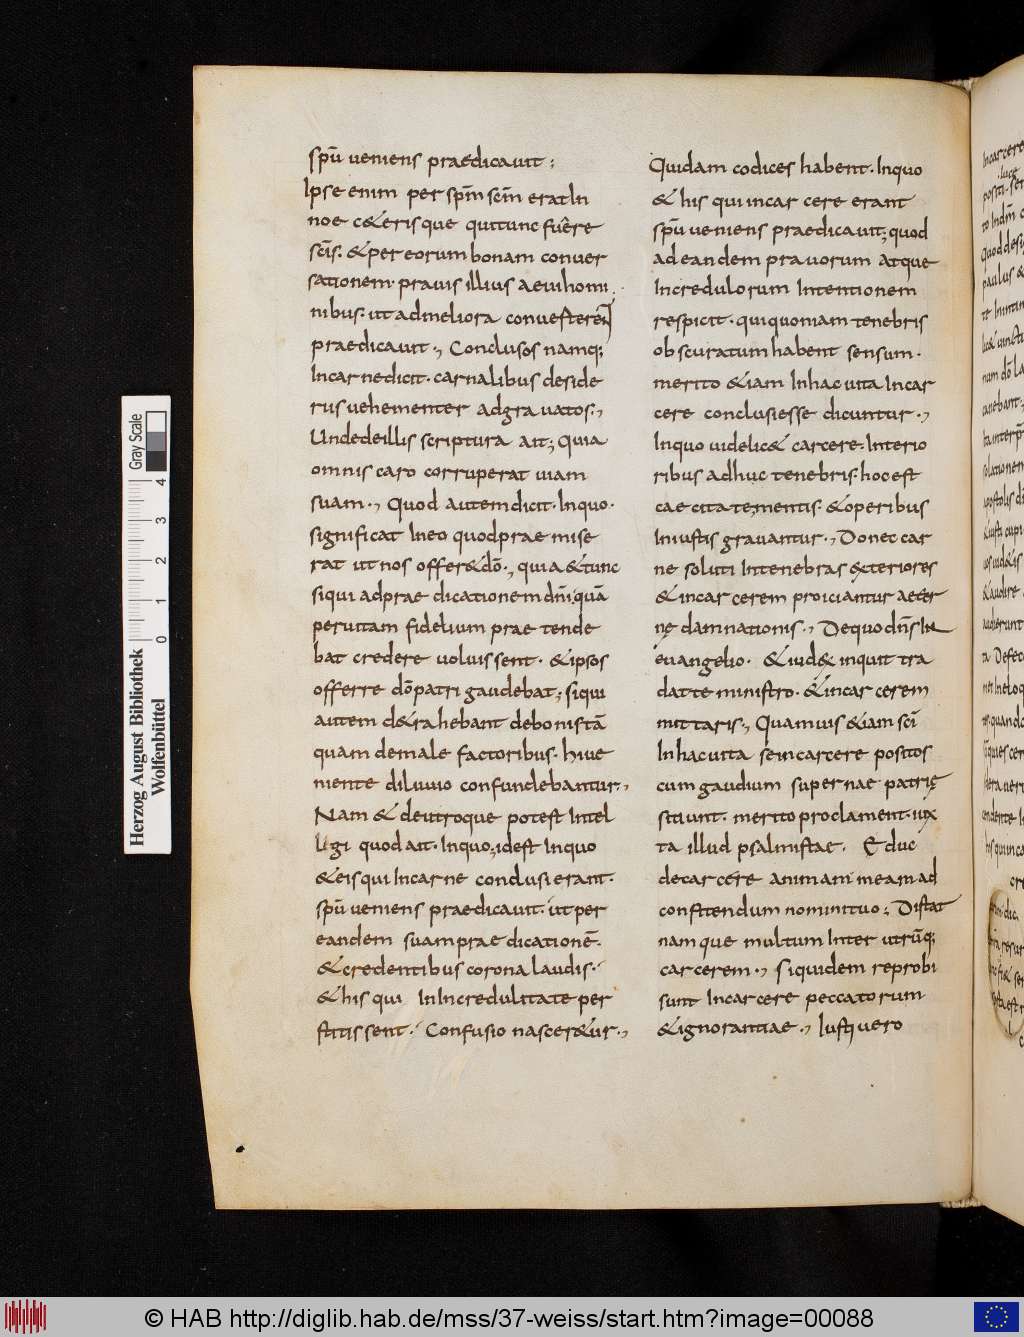 spū ueniens praedicauit;
Ipse enim per spm̄ scm̄ erat In
noe c&erisque qui tunc fuere
scīs. & per eorum bonam conuer
sationem. prauis illius aeui homi
nibus. ut ad meliora conuerteren̄
praedicauit., Conclusos namq;
In carne dicit. carnalibus deside
riis uehementer adgrauatos.,
Unde de illis scriptura ait; Quia
omnis caro corruperat uiam
suam., Quod autem dicit. In quo.
significat In eo quod prae mise
rat ut nos offer&dō., quia & tunc
siqui ad prae dicationem dn̄i, quā
per uitam fidelium prae tende
bat credere uoluissent. & ipsos
offerre dō patri gaudebat; siqui
autem d&rahebant de bonis tā
quam de male factoribus. hiue
niente diluuio confundebantur.,
Nam & de utroque potest Intel
legi quod ait. In quo, id est In quo
& eis qui In carne conclusi erant.
spū ueniens praedicauit. ut per
eandem suam prae dicationē.
& credentibus corona laudis.
& his qui In Incredulitate per
stitissent. Confusio nascer&ur.,
Quidam codices habent. In quo
& his qui in car cere erant
spū ueniens praedicauit; quod
ad eandem prauorum atque
Incredulorum Intentionem
respicit. qui quoniam tenebris
obscuratum habent sensum.
merito &iam In hac uita In car
cere conclusi esse dicuntur.,
In quo uidelic& carcere. Interio
ribus adhuc tenebris. hoc est
caecitate mentis. & operibus
Iniustis grauantur., Donec car
ne soluti In tenebras exteriores
& in car cerem proiciantur aeter
nę damnationis., De quo dn̄s In
euangelio. & iud& inquit tra
dat te ministro. & in car cerem
mittaris., Quamuis &iam scī
In hac uita se in carcere positos
cum gaudium supernae patrię
sitiunt. merito proclament. iux
ta illud psalmistae. Educ
de carcere animam meam ad
confitendum nomini tuo; Distat
nam que multum Inter utrūq;
carcerem., siquidem reprobi
sunt In carcere peccatorum
& ignorantiae., Iusti uero
In carcere
Herzog August Bibliothek
Wolfenbüttel
Gray Scale
0 1 2 3 4
© HAB http://diglib.hab.de/mss/37-weiss/start.htm?image=00088